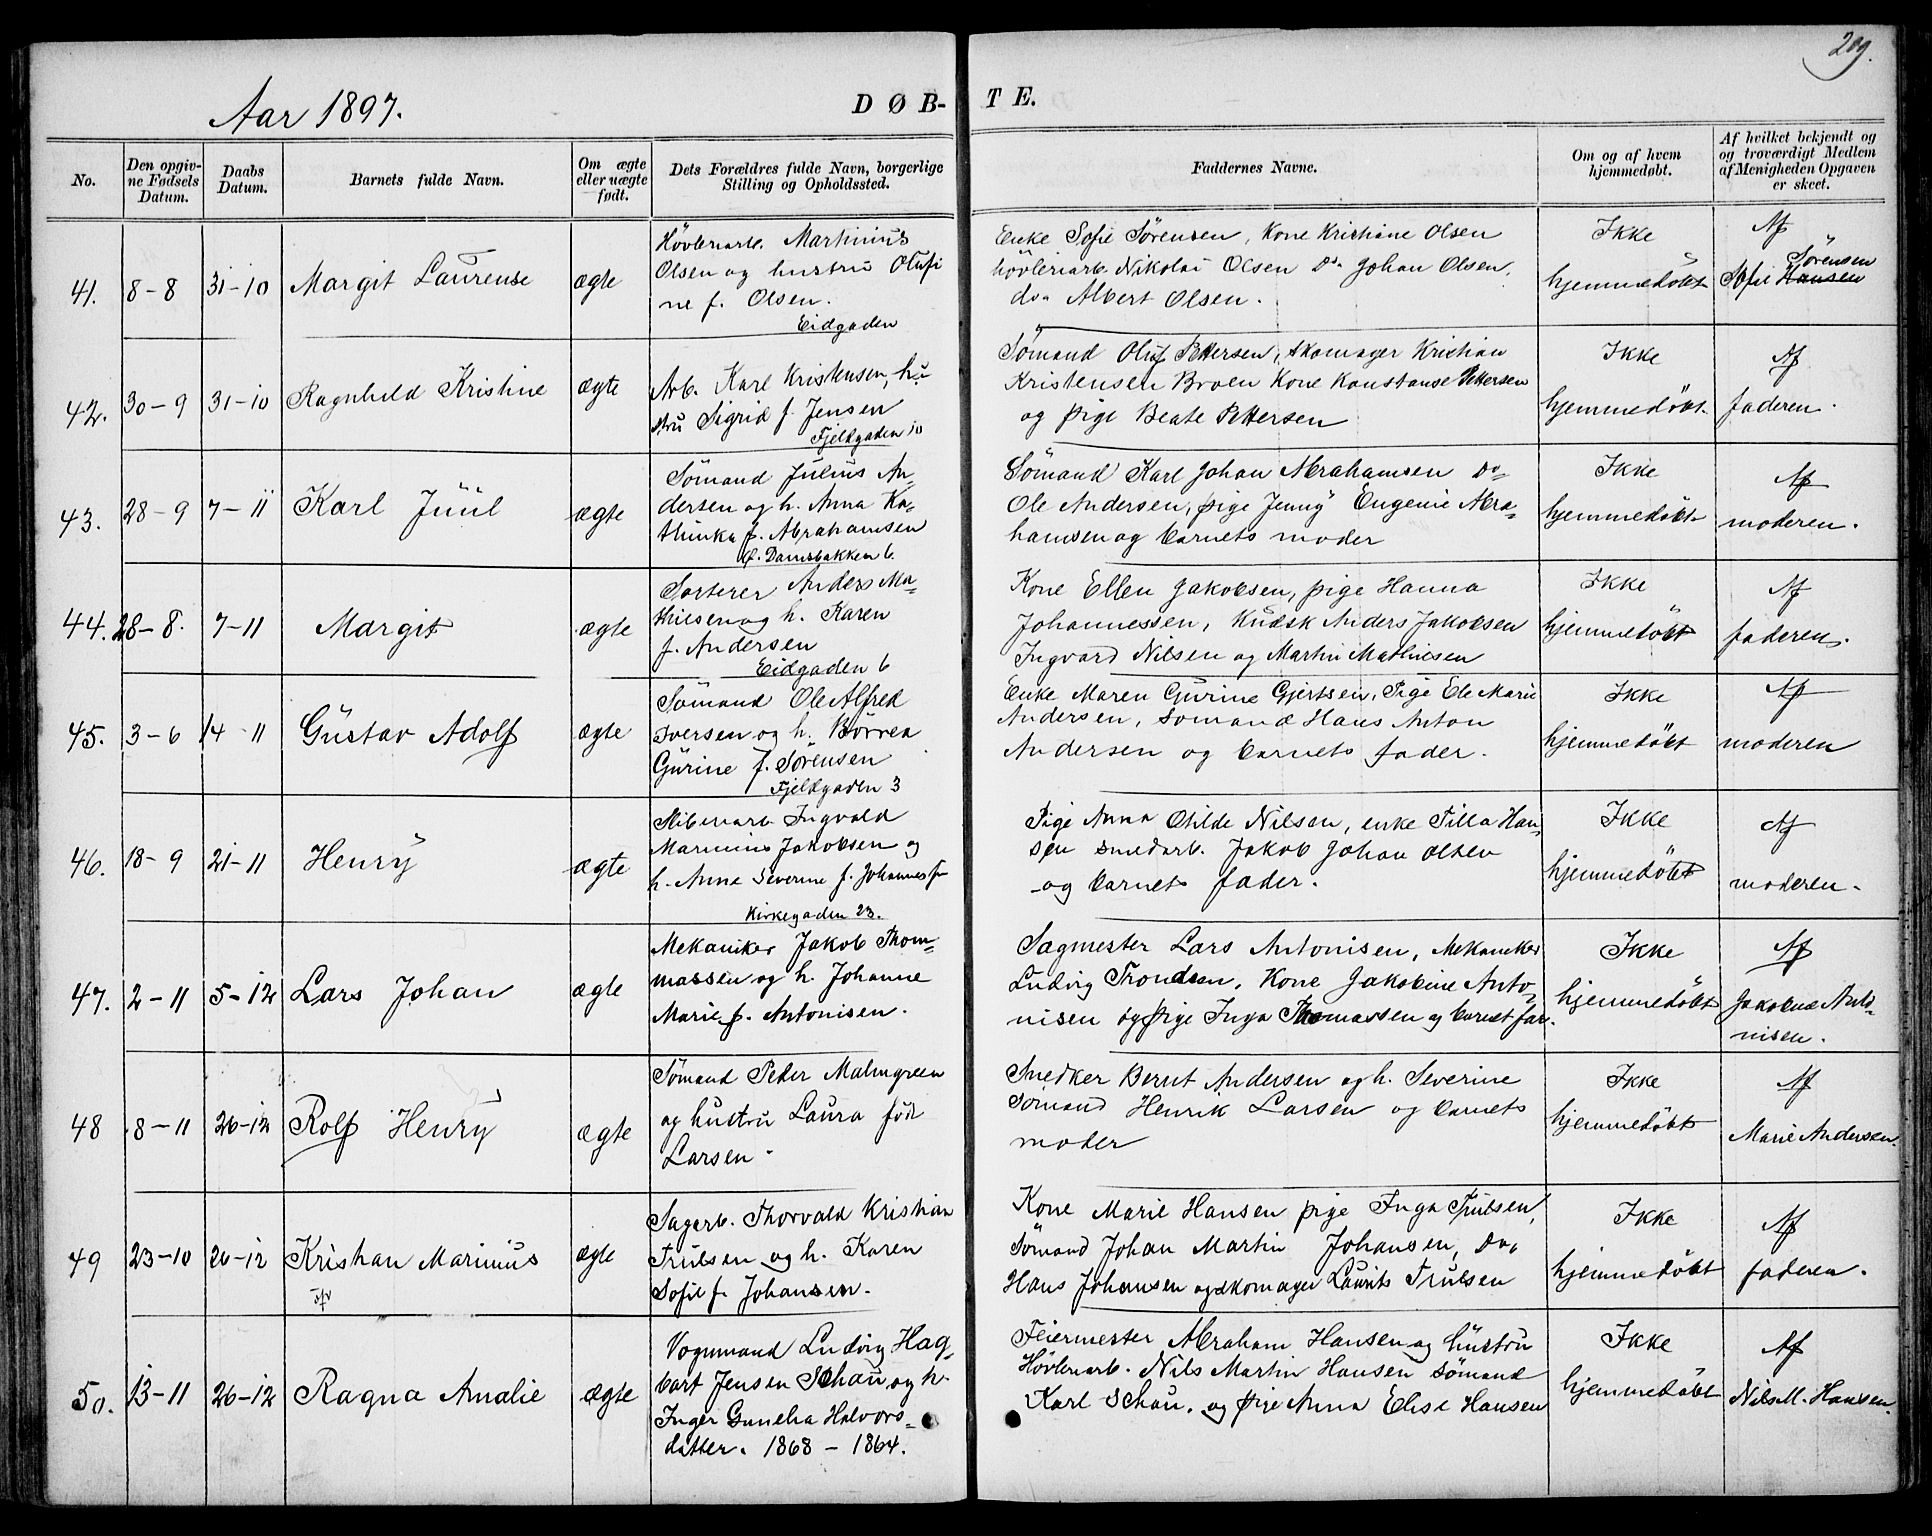 209.
Aar 1897.
DØB-
TE.
No.
Den opgiv-
ne Fødsels
Datum.
Daabs
Datum.
Barnets fulde Navn.
Om ægte
eller uægte
født.
Dets Forældres fulde Navn, borgerlige
Stilling og Opholdssted.
Faddernes Navne.
Om og af hvem
hjemmedøbt.
Af hvilket bekjendt og
og troværdigt Medlem
af Menigheden Opgaven
er skeet.
41.
8-8
31-10
Margit Laurense
ægte
Høvleriarb. Martinius
Olsen og hustru Olufi
ne f. Olsen.
Eidgaden
Enke Sofie Sørensen, Kone Kristiane Olsen
høvleriarb. Nikolai Olsen Do. Johan Olsen,
do. Albert Olsen.
Ikke
hjemmedøbt
Af
Sørensen
Sofie Hansen
42.
30-9
31-10
Ragnhild Kristine
ægte
Arb. Karl Kristensen, hu
stru Sigrid f. Jensen
Fjeldgaden 10
Sømand Oluf Pettersen, skomager Kristian
Kristensen Broen Kone Konstanse Pettersen
og pige Beate Pettersen
Ikke
hjemmedøbt.
Af
faderen.
43.
28-9
7-11
Karl Juul
ægte
Sømand Julius An-
dersen og h. Anna Ka-
thinka f. Abrahamsen
Ø. Damsbakken 6.
Sømand Karl Johan Abrahamsen Do
Ole Andersen, pige Jenny Eugenie Abra-
hamsen og barnets moder
Ikke
hjemmedøbt
Af
moderen.
44.
28-8.
7-11
Margit
ægte
Sorterer Anders Ma-
thiesen og h. Karen
f. Andersen
Eidgaden 6
Kone Ellen Jakobsen, pige Hanna
Johannessen, Kudsk Anders Jakobsen
Ingvard Nilsen og Martin Mathiesen
Ikke
hjemmedøbt
Af
faderen.
45.
3-6
14-11
Gustav Adolf
ægte
Sømand Ole Alfred
Iversen og h. Børrea
Gurine f. Sørensen
Fjeldgaden 3
Enke Maren Gurine Gjertsen, Pige Ele Marie
Andersen, sømand Hans Anton
Andersen og barnets fader.
Ikke
hjemmedøbt
Af
moderen
46.
18-9
21-11
Henry
ægte
Sliberiarb. Ingvald
Marinius Jakobsen og
h. Anne Severine f. Johannesen
Kirkegaden 23.
Pige Anna Otilde Nilsen, enke Tilla Han-
sen smedarb. Jakob Johan Olsen
og barnets fader.
Ikke
hjemmedøbt
Af
moderen.
47.
2-11
5-12
Lars Johan
ægte
Mekaniker Jakob Thom-
massen og h. Johanne
Marie f. Antonisen.
Sagmester Lars Antonisen, Mekaniker
Ludvig Trondsen, Kone Jakobine Anto-
nisen og Pige Inga Thomassen og barnet far.
Ikke
hjemmedøbt
Af
Jakobine Anto-
nisen.
48
8-11
26-12
Rolf Henry
ægte
Sømand Peder Malmgreen
og hustru Laura født
Larsen.
Snedker Bernt Andersen og h. Severine
Sømand Henrik Larsen og barnets
moder
Ikke
hjemmedøbt
Af
Marie Andersen.
49
23-10
26-12
Kristian Marinius
ægte
Sagarb. Thorvald Kristian
Trulsen og h. Karen
Sofie f. Johansen.
Kone Marie Hansen pige Inga Trulsen,
Sømand Johan Martin Johansen, Do,
Hans Johansen og skomager Laurits Trulsen
Ikke
hjemmedøbt
Af
faderen.
50.
13-11
26-12
Ragna Amalie
ægte
Vognmand Ludvig Hag-
bart Jensen Schau og h.
Inger Gunelia Halvors-
datter. 1868 - 1864.
Feiermester Abraham Hansen og hustru
Høvleriarb. Nils Martin Hansen sømand
Karl Schau. og Pige Anna Elise Hansen
Ikke
hjemmedøbt
Af
Nils M. Hansen.